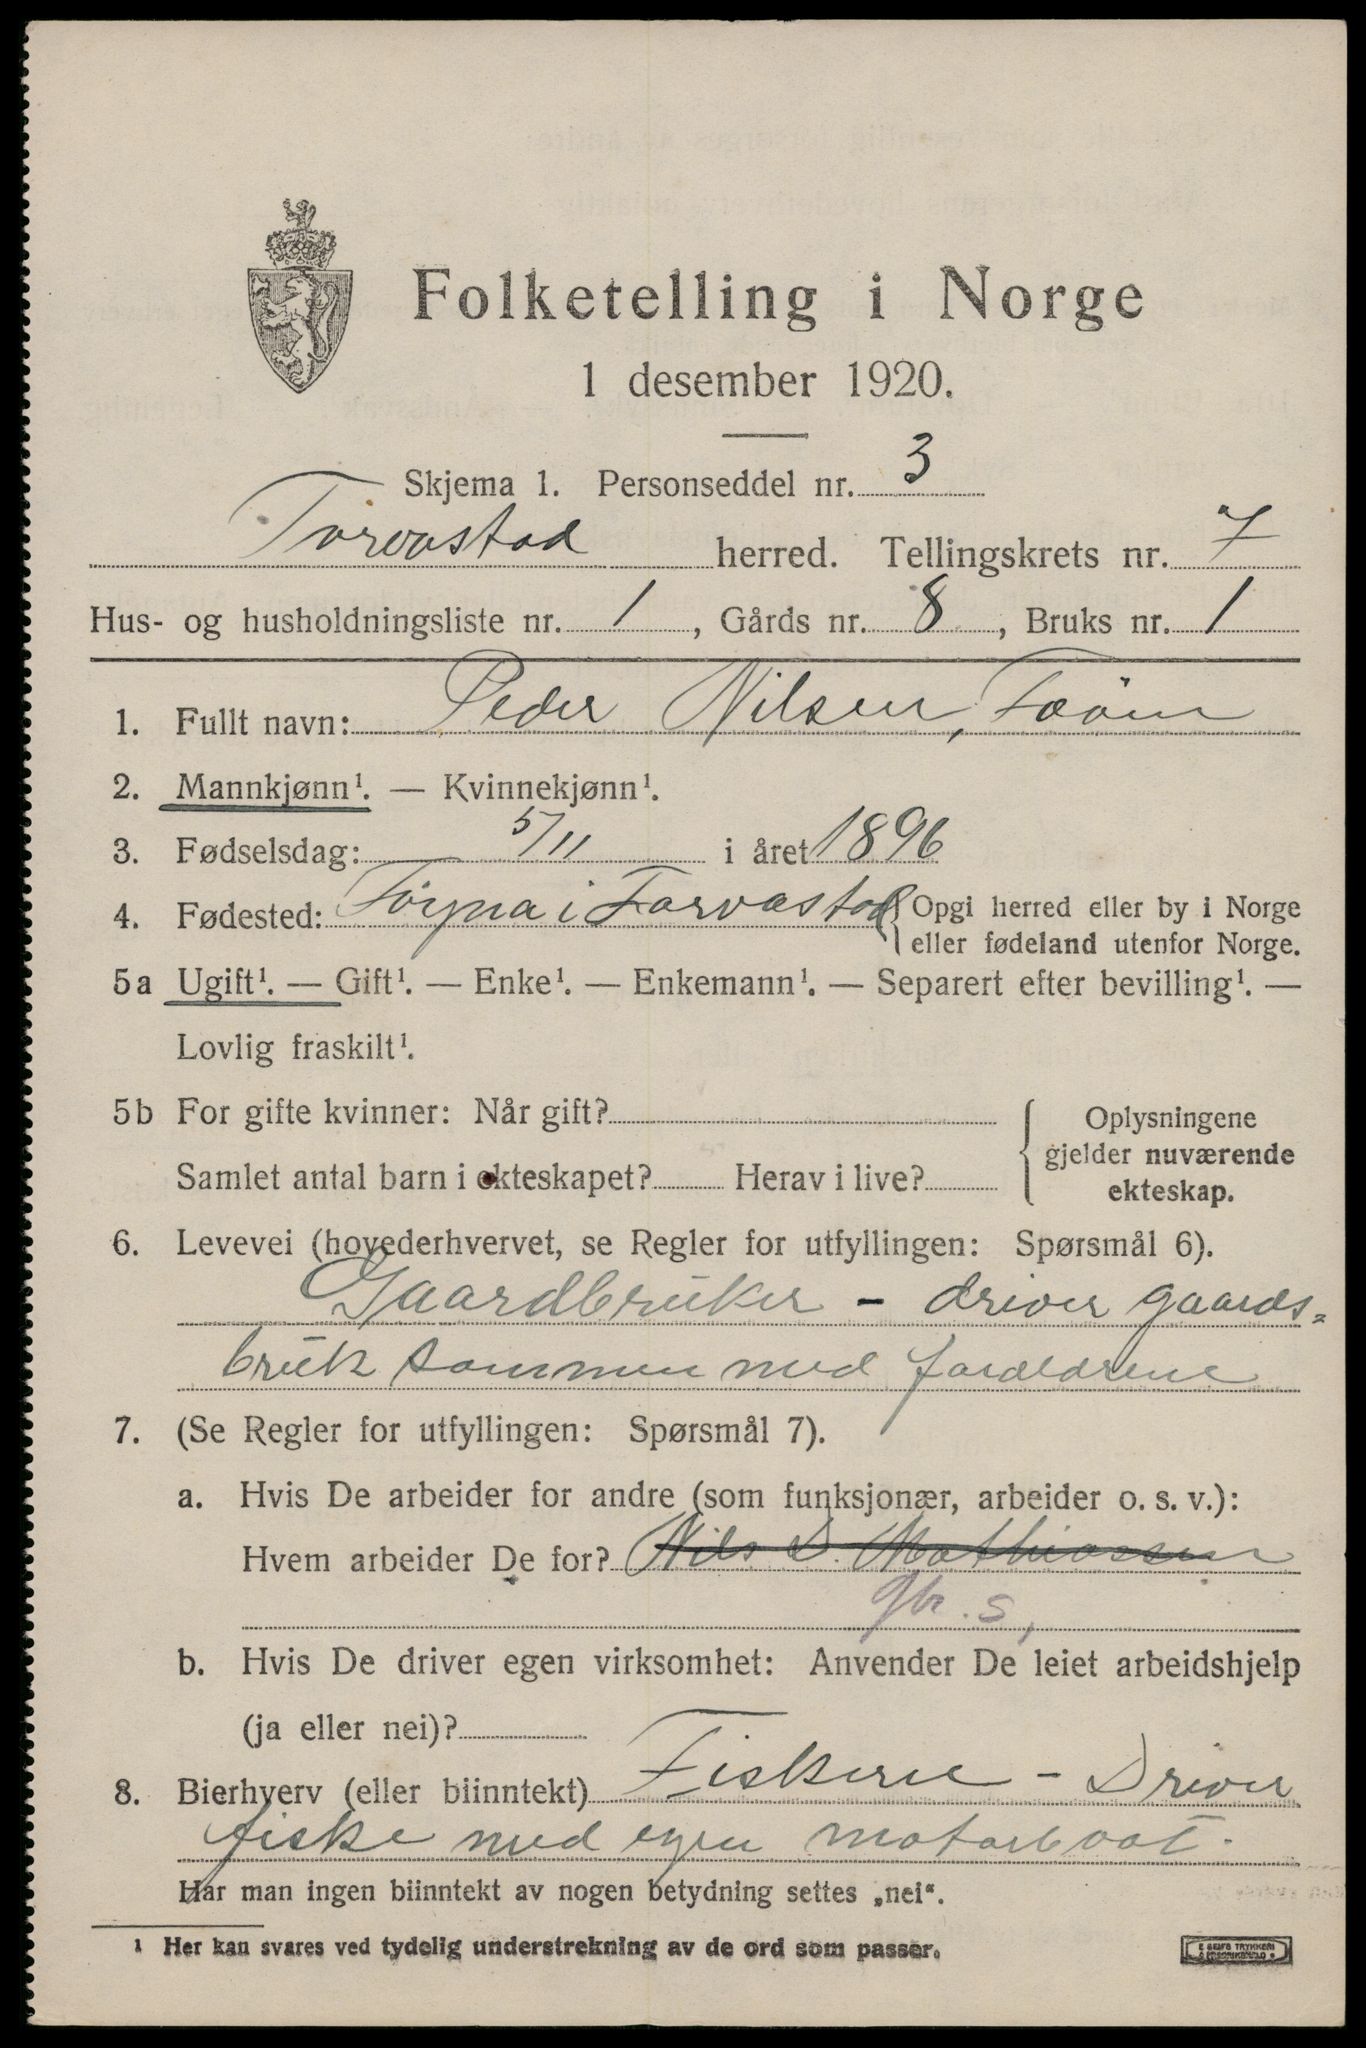 Folketelling i Norge
1 desember 1920.
Skjema 1. Personseddel nr. 3
Torvastad herred. Tellingskrets nr. 7
Hus- og husholdningsliste nr. 1, Gårds nr. 8, Bruks nr. 1
1. Fullt navn: Peder Nilsen,
2. Mannkjønn¹. — Kvinnekjønn¹.
3. Fødselsdag: 5/11 i året 1896
4. Fødested: i Torvastad { Opgi herred eller by i Norge
eller fødeland utenfor Norge.
5a Ugift¹. — Gift¹. — Enke¹. — Enkemann¹. — Separert efter bevilling¹. —
Lovlig fraskilt¹.
5b For gifte kvinner: Når gift?
Samlet antal barn i ekteskapet? Herav i live?
{ Oplysningene
gjelder nuværende
ekteskap.
6. Levevei (hovederhvervet, se Regler for utfyllingen: Spørsmål 6).
Gaardbruker - driver gaards=
bruk sammen med foreldrene
7. (Se Regler for utfyllingen: Spørsmål 7).
a. Hvis De arbeider for andre (som funksjonær, arbeider o. s. v.):
Hvem arbeider De for? Nils D. Mathiassen
gbr. s,
b. Hvis De driver egen virksomhet: Anvender De leiet arbeidshjelp
(ja eller nei)?
8. Bierhverv (eller biinntekt) Fiskeri - Driver
fiske med egen motorbaat.
Har man ingen biinntekt av nogen betydning settes „nei“.
¹ Her kan svares ved tydelig understrekning av de ord som passer.
E SEMS TRYKKERI